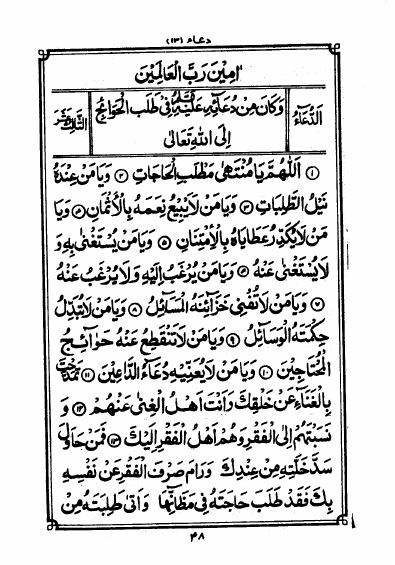 دعاء (۱۳)
اٰمِيْنَ رَبَّ الْعَالَمِيْنَ
اَلدُّعَاءُ
وَكَانَ مِنْ دُعَآئِهٖ عَلَيْهِ السَّلَامُ فِيْ طَلَبِ الْحَوَآئِجِ
اِلَى اللّٰهِ تَعَالٰى
الثَّالِثَ عَشَرَ
۱ اَللّٰهُمَّ يَا مُنْتَهٰى مَطْلَبِ الْحَاجَاتِ ۲ وَيَا مَنْ عِنْدَهٗ
نَيْلُ الطَّلِبَاتِ ۳ وَيَا مَنْ لَا يَبِيْعُ نِعَمَهٗ بِالْاَثْمَانِ ۴ وَيَا
مَنْ لَا يُكَدِّرُ عَطَايَاهُ بِالْاِمْتِنَانِ ۵ وَيَا مَنْ يُسْتَغْنٰى بِهٖ وَ
لَا يُسْتَغْنٰى عَنْهُ ۶ وَيَا مَنْ يُرْغَبُ اِلَيْهِ وَلَا يُرْغَبُ عَنْهُ
۷ وَيَا مَنْ لَا تُفْنِيْ خَزَآئِنَهُ الْمَسَآئِلُ ۸ وَيَا مَنْ لَا تُبَدِّلُ
حِكْمَتَهُ الْوَسَآئِلُ ۹ وَيَا مَنْ لَا تَنْقَطِعُ عَنْهُ حَوَآئِجُ
الْمُحْتَاجِيْنَ ۱۰ وَيَا مَنْ لَا يُعَنِّيْهِ دُعَآءُ الدَّاعِيْنَ ۱۱ تَمَدَّحْتَ
بِالْغَنَآءِ عَنْ خَلْقِكَ وَاَنْتَ اَهْلُ الْغِنٰى عَنْهُمْ ۱۲ وَ
نَسَبْتَهُمْ اِلَى الْفَقْرِ وَهُمْ اَهْلُ الْفَقْرِ اِلَيْكَ ۱۳ فَمَنْ حَاوَلَ
سَدَّ خَلَّتِهٖ مِنْ عِنْدِكَ وَرَامَ صَرْفَ الْفَقْرِ عَنْ نَفْسِهٖ
بِكَ فَقَدْ طَلَبَ حَاجَتَهٗ فِيْ مَظَآنِّهَا وَاَتٰى طَلِبَتَهٗ مِنْ
۴۸